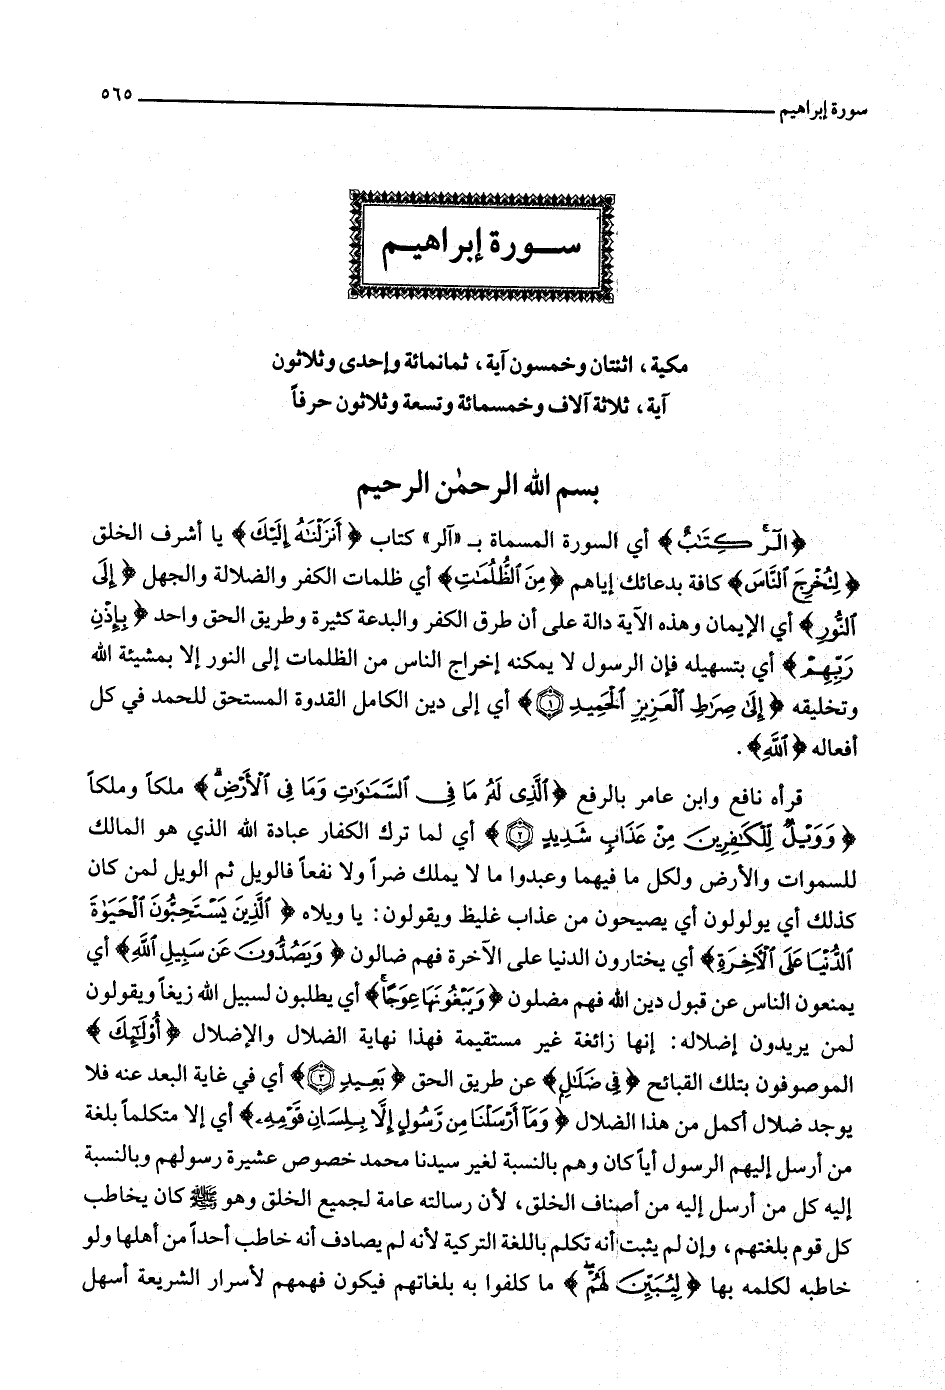 سورة إبراهيم ٥٦٥
سورة إبراهيم
مكية، اثنتان وخمسون آية، ثمانمائة وإحدى وثلاثون
آية، ثلاثة آلاف وخمسمائة وتسعة وثلاثون حرفاً
بسم الله الرحمٰن الرحيم
﴿الٓرۚ كِتَٰبٌ﴾ أي السورة المسماة بـ «آلر» كتاب ﴿أَنزَلْنَٰهُ إِلَيْكَ﴾ يا أشرف الخلق
﴿لِتُخْرِجَ ٱلنَّاسَ﴾ كافة بدعائك إياهم ﴿مِنَ ٱلظُّلُمَٰتِ﴾ أي ظلمات الكفر والضلالة والجهل ﴿إِلَى
ٱلنُّورِ﴾ أي الإيمان وهذه الآية دالة على أن طرق الكفر والبدعة كثيرة وطريق الحق واحد ﴿بِإِذْنِ
رَبِّهِمْ﴾ أي بتسهيله فإن الرسول لا يمكنه إخراج الناس من الظلمات إلى النور إلا بمشيئة الله
وتخليقه ﴿إِلَىٰ صِرَٰطِ ٱلْعَزِيزِ ٱلْحَمِيدِ ۝١﴾ أي إلى دين الكامل القدوة المستحق للحمد في كل
أفعاله ﴿ٱللَّهِ﴾.
قرأه نافع وابن عامر بالرفع ﴿ٱلَّذِى لَهُۥ مَا فِى ٱلسَّمَٰوَٰتِ وَمَا فِى ٱلْأَرْضِۗ﴾ ملكاً وملكاً
﴿وَوَيْلٌ لِّلْكَٰفِرِينَ مِنْ عَذَابٍ شَدِيدٍ ۝٢﴾ أي لما ترك الكفار عبادة الله الذي هو المالك
للسموات والأرض ولكل ما فيهما وعبدوا ما لا يملك ضراً ولا نفعاً فالويل ثم الويل لمن كان
كذلك أي يولولون أي يصيحون من عذاب غليظ ويقولون: يا ويلاه ﴿ٱلَّذِينَ يَسْتَحِبُّونَ ٱلْحَيَوٰةَ
ٱلدُّنْيَا عَلَى ٱلْـَٔاخِرَةِ﴾ أي يختارون الدنيا على الآخرة فهم ضالون ﴿وَيَصُدُّونَ عَن سَبِيلِ ٱللَّهِ﴾ أي
يمنعون الناس عن قبول دين الله فهم مضلون ﴿وَيَبْغُونَهَا عِوَجًاۚ﴾ أي يطلبون لسبيل الله زيغاً ويقولون
لمن يريدون إضلاله: إنها زائغة غير مستقيمة فهذا نهاية الضلال والإضلال ﴿أُو۟لَٰٓئِكَ﴾
الموصوفون بتلك القبائح ﴿فِى ضَلَٰلٍۭ﴾ عن طريق الحق ﴿بَعِيدٍ ۝٣﴾ أي في غاية البعد عنه فلا
يوجد ضلال أكمل من هذا الضلال ﴿وَمَآ أَرْسَلْنَا مِن رَّسُولٍ إِلَّا بِلِسَانِ قَوْمِهِۦ﴾ أي إلا متكلماً بلغة
من أرسل إليهم الرسول أياً كان وهم بالنسبة لغير سيدنا محمد خصوص عشيرة رسولهم وبالنسبة
إليه كل من أرسل إليه من أصناف الخلق، لأن رسالته عامة لجميع الخلق وهو ﷺ كان يخاطب
كل قوم بلغتهم، وإن لم يثبت أنه تكلم باللغة التركية لأنه لم يصادف أنه خاطب أحداً من أهلها ولو
خاطبه لكلمه بها ﴿لِيُبَيِّنَ لَهُمْۖ﴾ ما كلفوا به بلغاتهم فيكون فهمهم لأسرار الشريعة أسهل